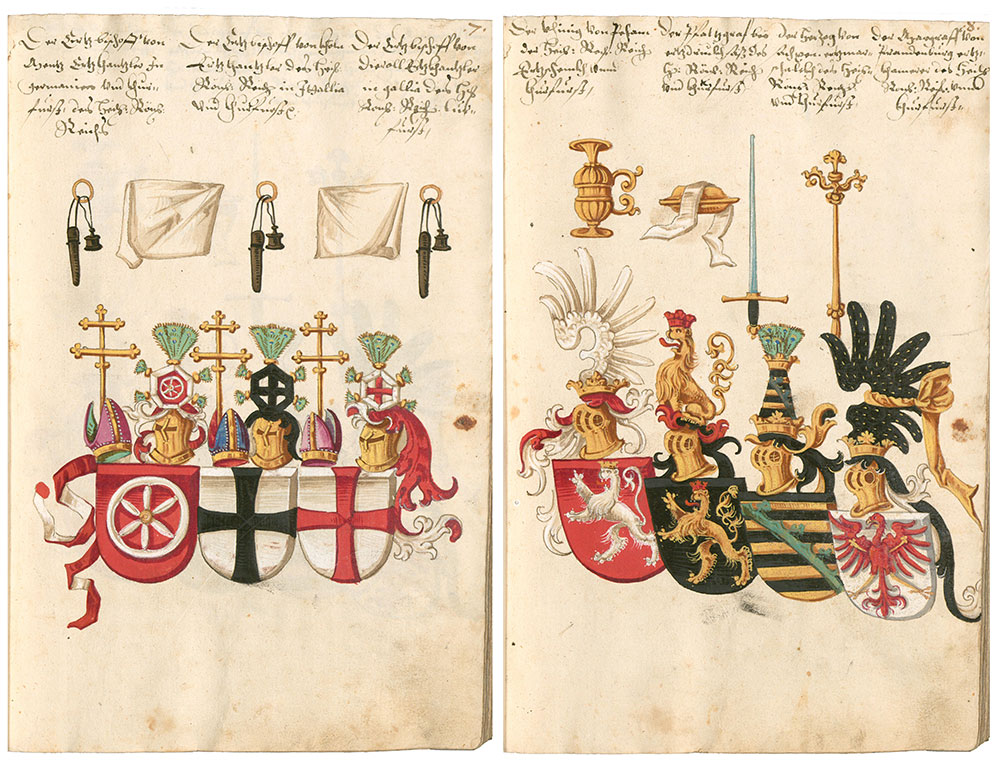 7.
Der Ertzbischoff von
Mentz Ertzkantzler in
germanien vnd Chur-
fürst, des Heyl: Röm:
Reichs
Der Ertzbischoff von Köln
Ertzkantzler des Heil:
Röm: Reichs in Itallia
vnd Churfürst.
Der Ertzbischoff von
Ertzkantzler
in gallia des Hey:
Röm: Reichs
fürst.
8.
Der König von
des Heil: Röm: Reich
Ertzschenk vnnd
Churfürst.
Der Pfaltzgraf
des
Hey: Röm: Reich
vnd Churfürst.
Der Hertzog von
Sachsen
des Heil:
Röm: Reichs
vnd Churfürst.
Der Marggraff von
Brandenburg ertz-
Camerer des Heil:
Röm: Reich: vnnd
Churfürst.